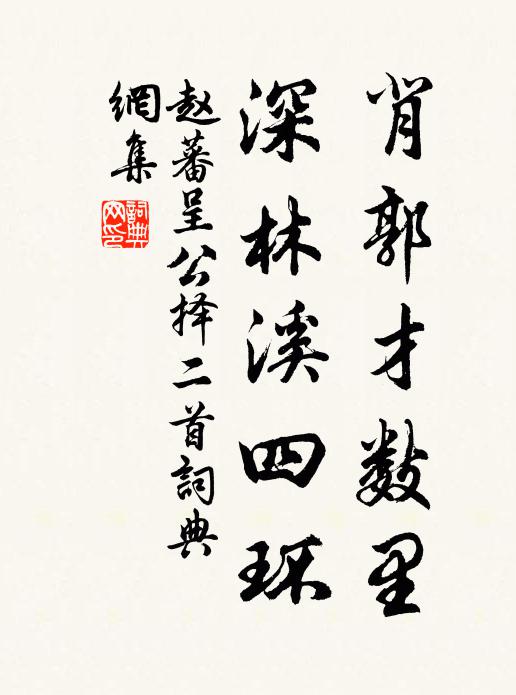 肖郭才数里
深林溪四环
赵蕃呈公择二首詞典
網集
詞典
网印